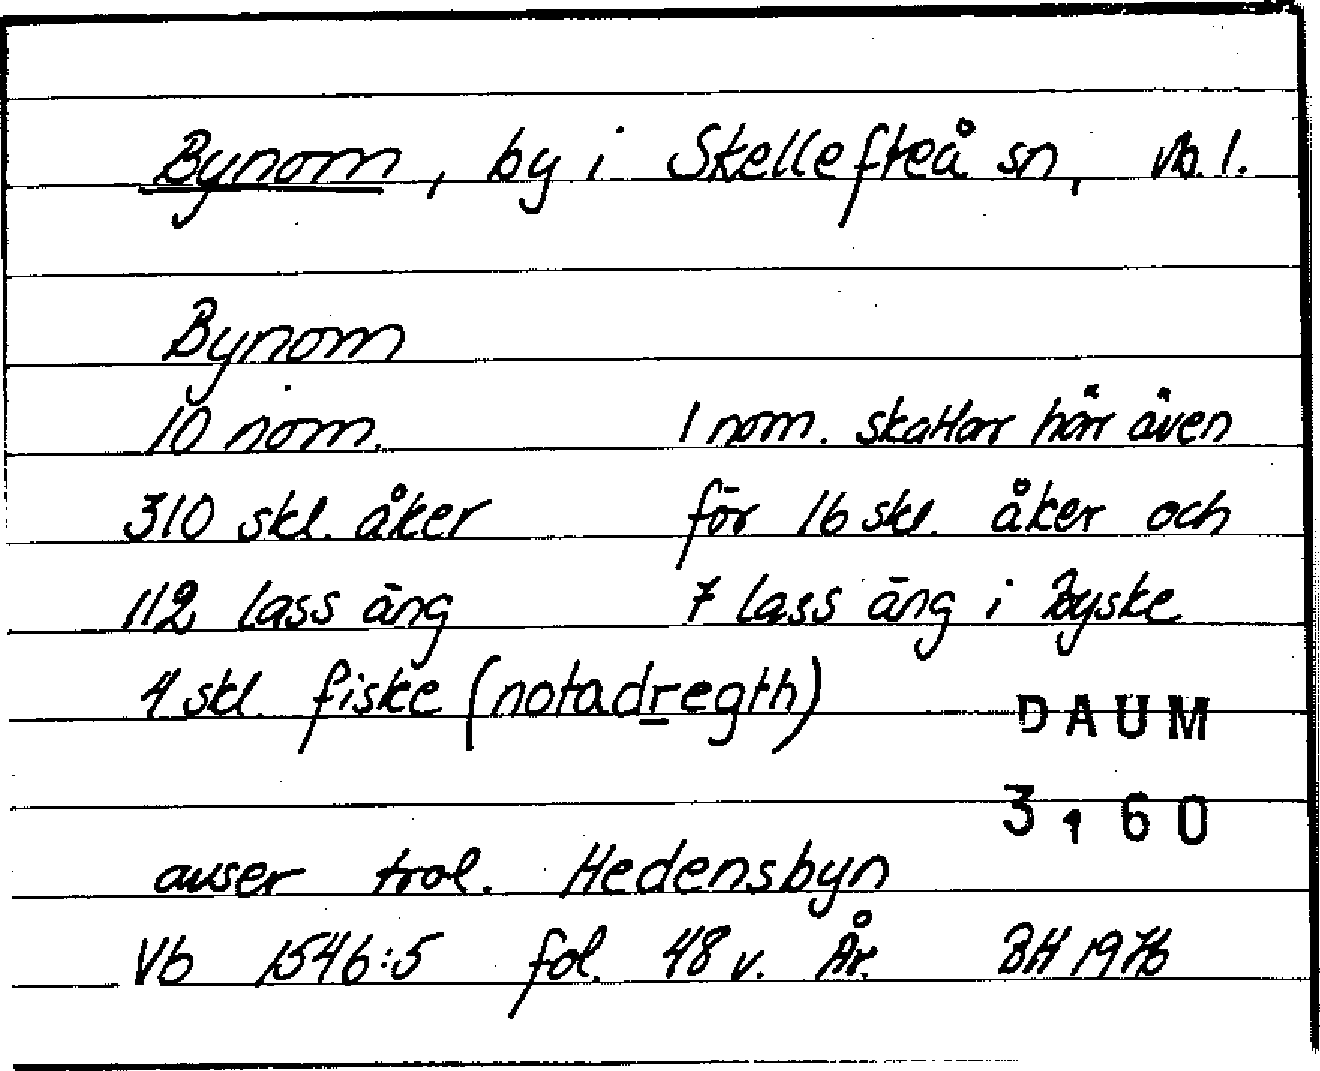 Bynom, by i Skellefteå sn, Vb. l.
Bynom
10 nom. 1 nom. skattar här även
310 skl. åker för 16 skl. åker och
112 lass äng 7 lass äng i Byske
4 skl. fiske (notadregth)
DAUM
3160
avser trol. Hedensbyn
Vb 1546:5 fol. 48 v. År. BH 1976